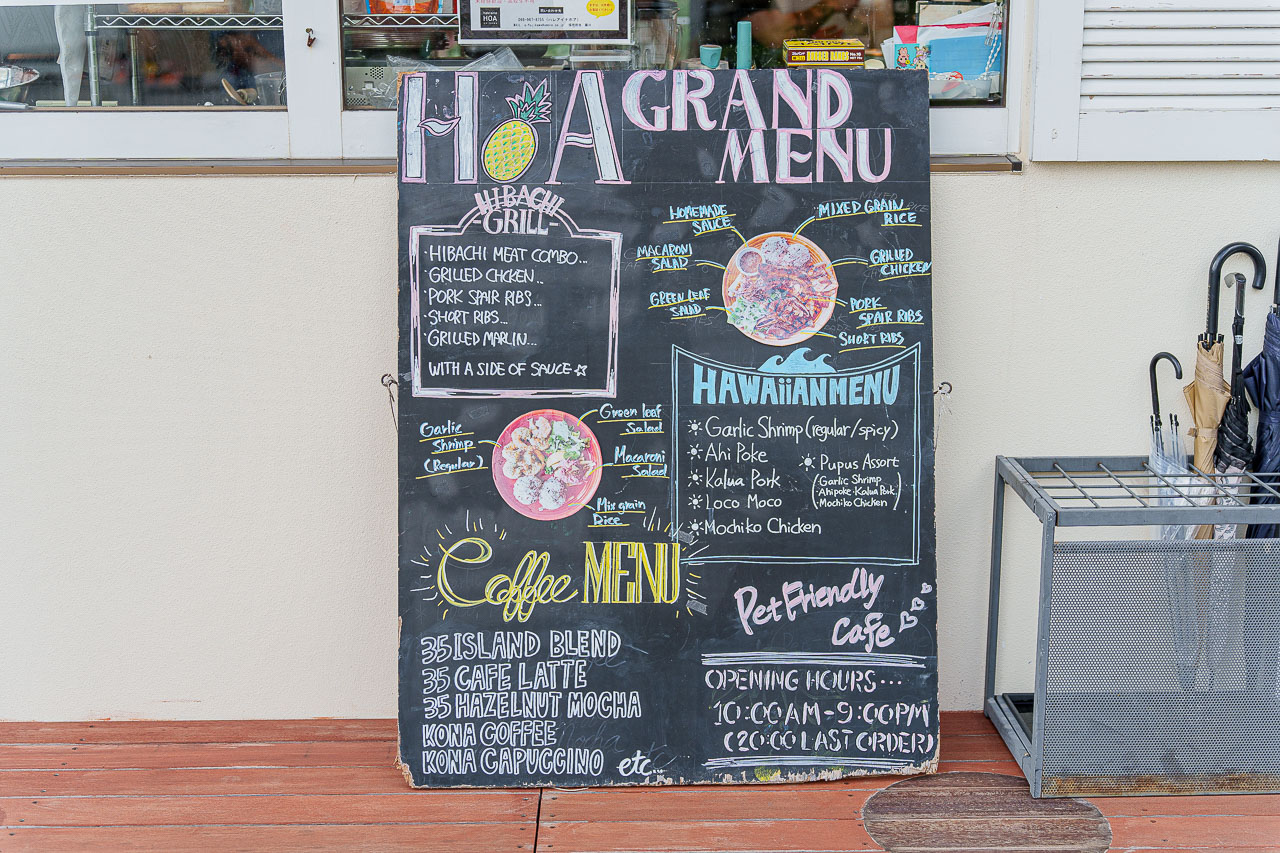 HOA
GRAND
MENU
HIBACHI
-GRILL-
·HIBACHI MEAT COMBO...
·GRILLED CHCKEN...
·PORK SPAIR RIBS...
·SHORT RIBS...
·GRILLED MARLIN...
WITH A SIDE OF SAUCE☆
HOMEMADE
SAUCE
MACARONI
SALAD
GREEN LEAF
SALAD
MIXED GRAIN
RICE
GRILLED
CHICKEN
PORK
SPAIR RIBS
SHORT RIBS
Garlic
Shrimp
(Regular)
Green leaf
Salad
Macaroni
Salad
Mix grain
Rice
HAWAiiAN MENU
Garlic Shrimp (regular/spicy)
Ahi Poke
Kalua Pork
Loco Moco
Mochiko Chicken
Pupus Assort
(Garlic Shrimp
·Ahipoke·Kalua Pork
Mochiko Chicken)
Coffee MENU
35 ISLAND BLEND
35 CAFE LATTE
35 HAZELNUT MOCHA
KONA COFFEE
KONA CAPUCCINO etc...
Pet Friendly
Cafe
OPENING HOURS...
10:00AM-9:00PM
(20:00 LAST ORDER)
HOA
RUBBER BANDS